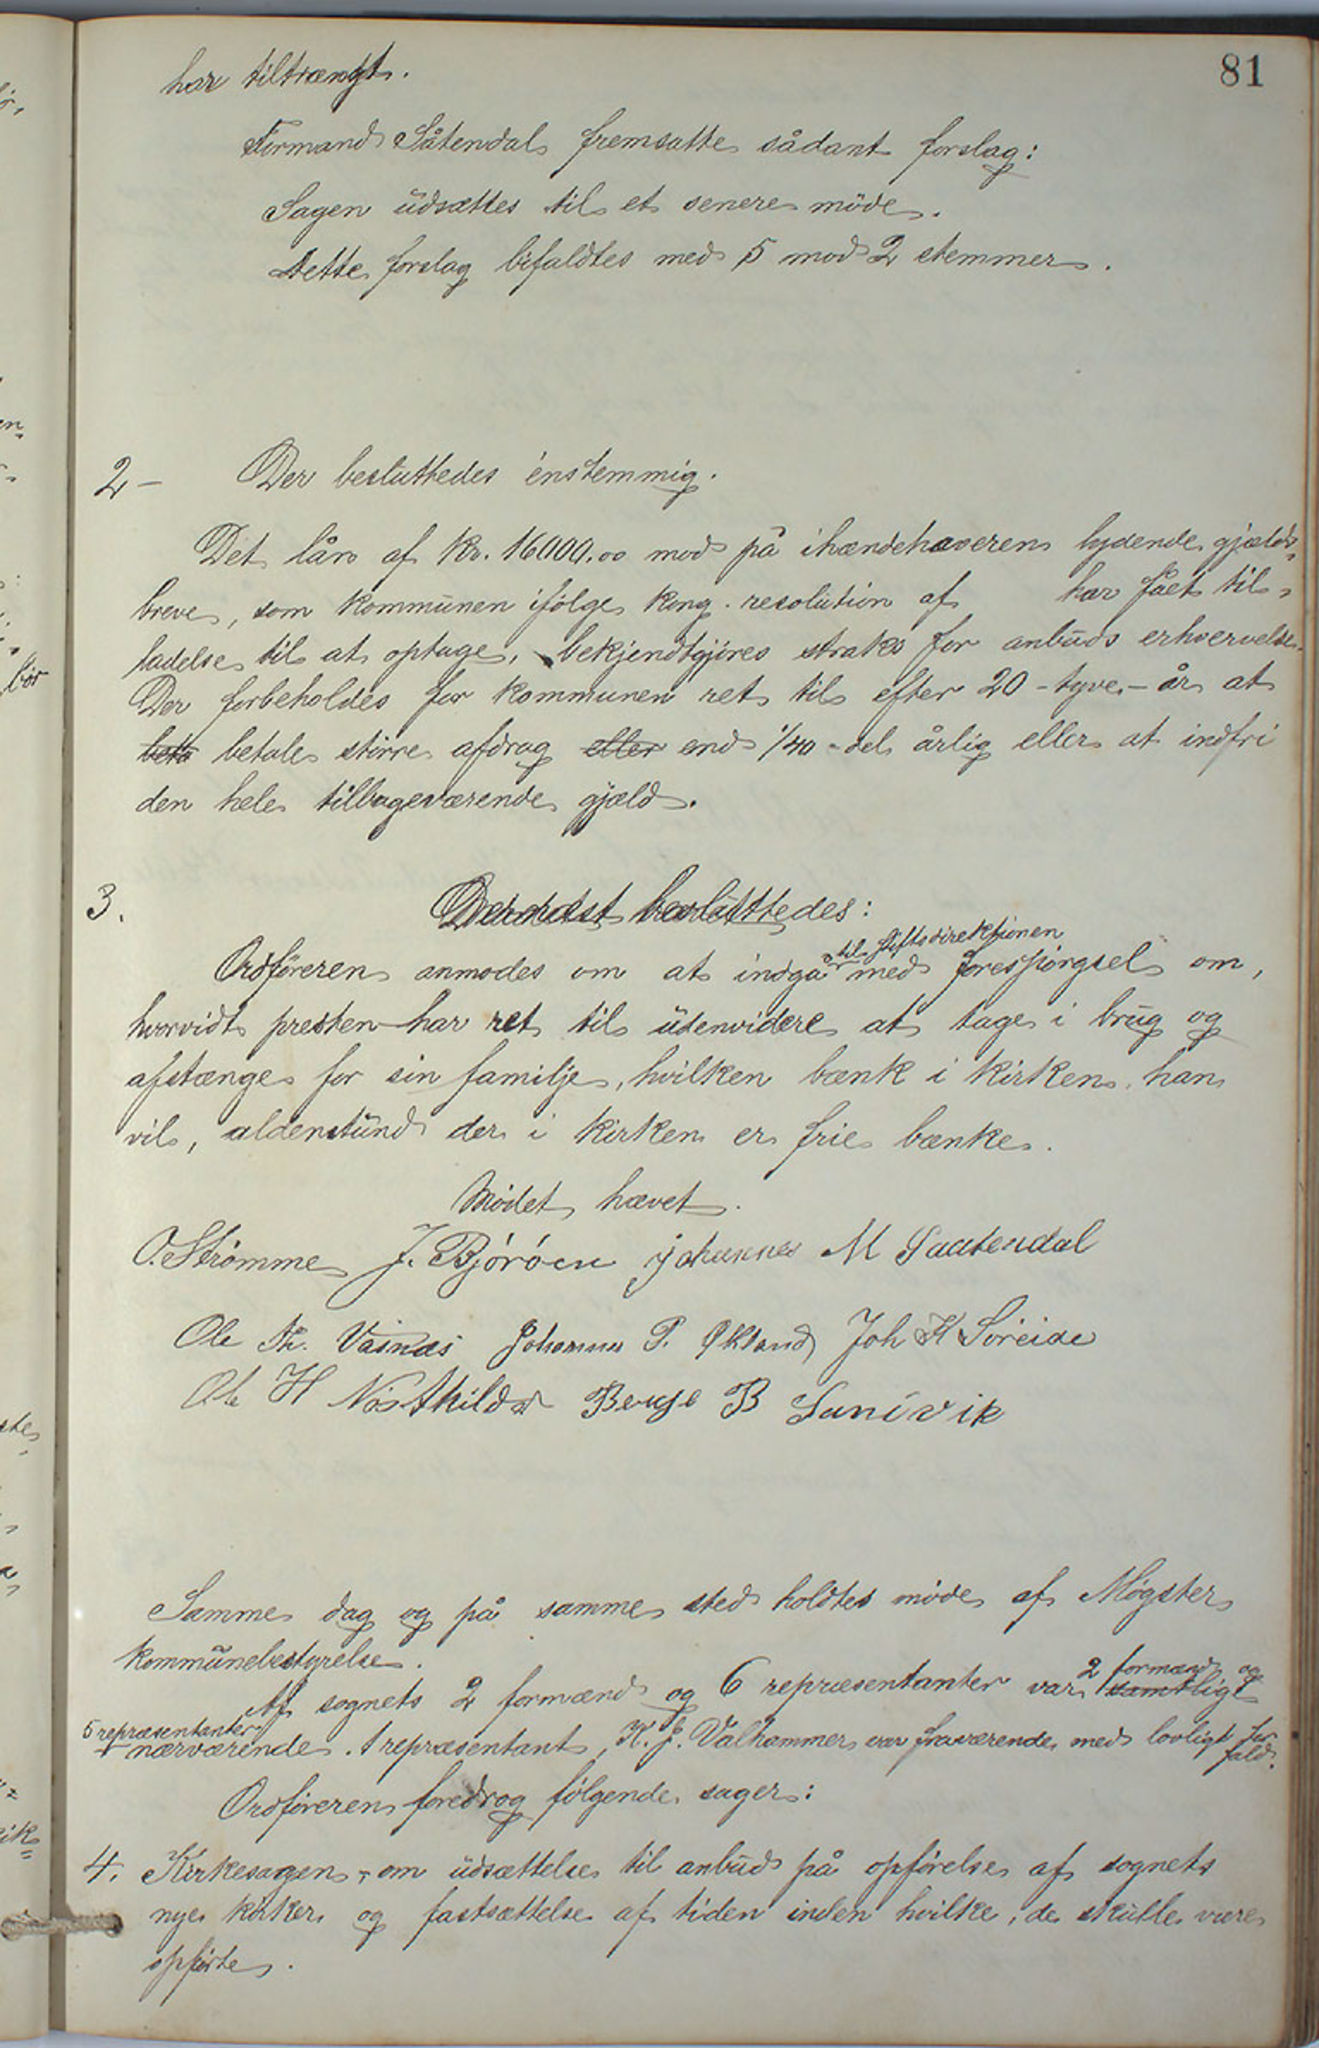 81
har tiltrængt.
Formand Såtendal fremsatte sådant forslag:
Sagen udsættes til et senere møde.
Dette forslag bifaldtes med 5 mod 2 stemmer.
2 – Der besluttedes énstemmig.
Det lån af kr. 16000.00 mod på ihændehaveren lydende gjælds-
breve, som kommunen ifølge kong. resolution af har fået til-
ladelse til at optage, bekjendtgjøres straks for anbuds erhvervelse.
Der forbeholdes for kommunen ret til efter 20 - tyve - år at
beta betale større afdrag eller end 1/40-del årlig eller at indfri
den hele tilbageværende gjæld.
3. Dernæst besluttedes:
til stiftsdirektionen
Ordføreren anmodes om at indgå med forespørgsel om,
hvorvidt presten har ret til udenvidere at tage i brug og
afstænge for sin familje, hvilken bænk i kirken han
vil, aldenstund der i kirken er frie bænke.
Mødet hævet.
O. Strømme J. Bjørøen Johannes M Saatendal
Ole Th. Johannes P. Økland Joh H Søreide
Ole H Nøsthildr B
Samme dag og på samme sted holdtes møde af Møgster
kommunebestyrelse.
2 formænd og
Af sognets 2 formænd og 6 repræsentanter var samtlige
5 repræsentanter
nærværende. 1 repræsentant, K. J. Valhammer var fraværende med lovligt for-
fald.
Ordføreren foredrog følgende sager:
4. Kirkesagen, - om udsættelse til anbud på opførelse af sognets
nye kirker og fastsættelse af tiden inden hvilke, de skulle være
opførte.